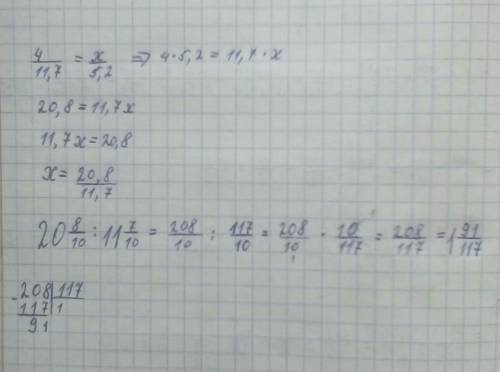 4/11,7 = x/5,2 => 4·5,2 = 11,7·x
20,8 = 11,7x
11,7x = 20,8
x = 20,8/11,7
20 8/10 : 11 7/10 = 208/10 : 117/10 = 208/10 · 10/117 = 208/117 = 1 91/117
-208|117
117|1
91